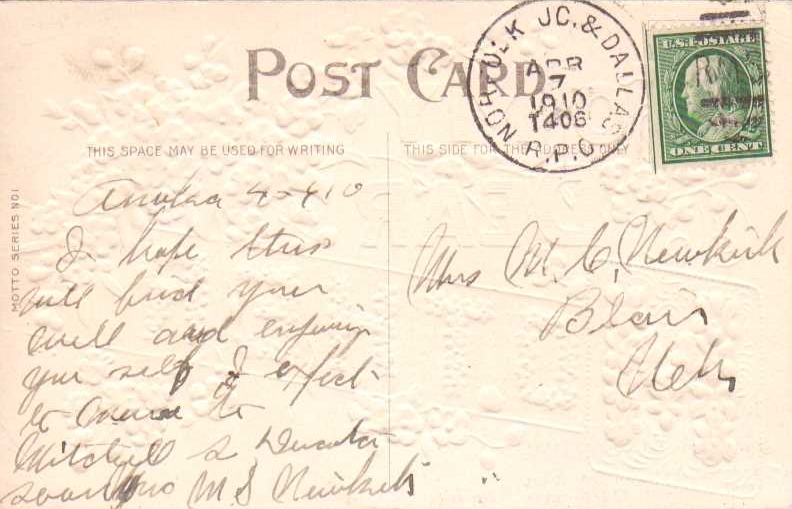 POST CARD
NORFOLK JC. & DALLAS
APR
7
1910
T406
R.P.O.
U.S. POSTAGE
ONE CENT
THIS SPACE MAY BE USED FOR WRITING
THIS SIDE FOR THE ADDRESS ONLY
MOTTO SERIES NO1
I hope this
will find your
well and enjoying
your self I expect
to move to
Mitchell S Dacota
soon yno M S Newkirk
Mrs M. C. Newkirk
Blair
Neb